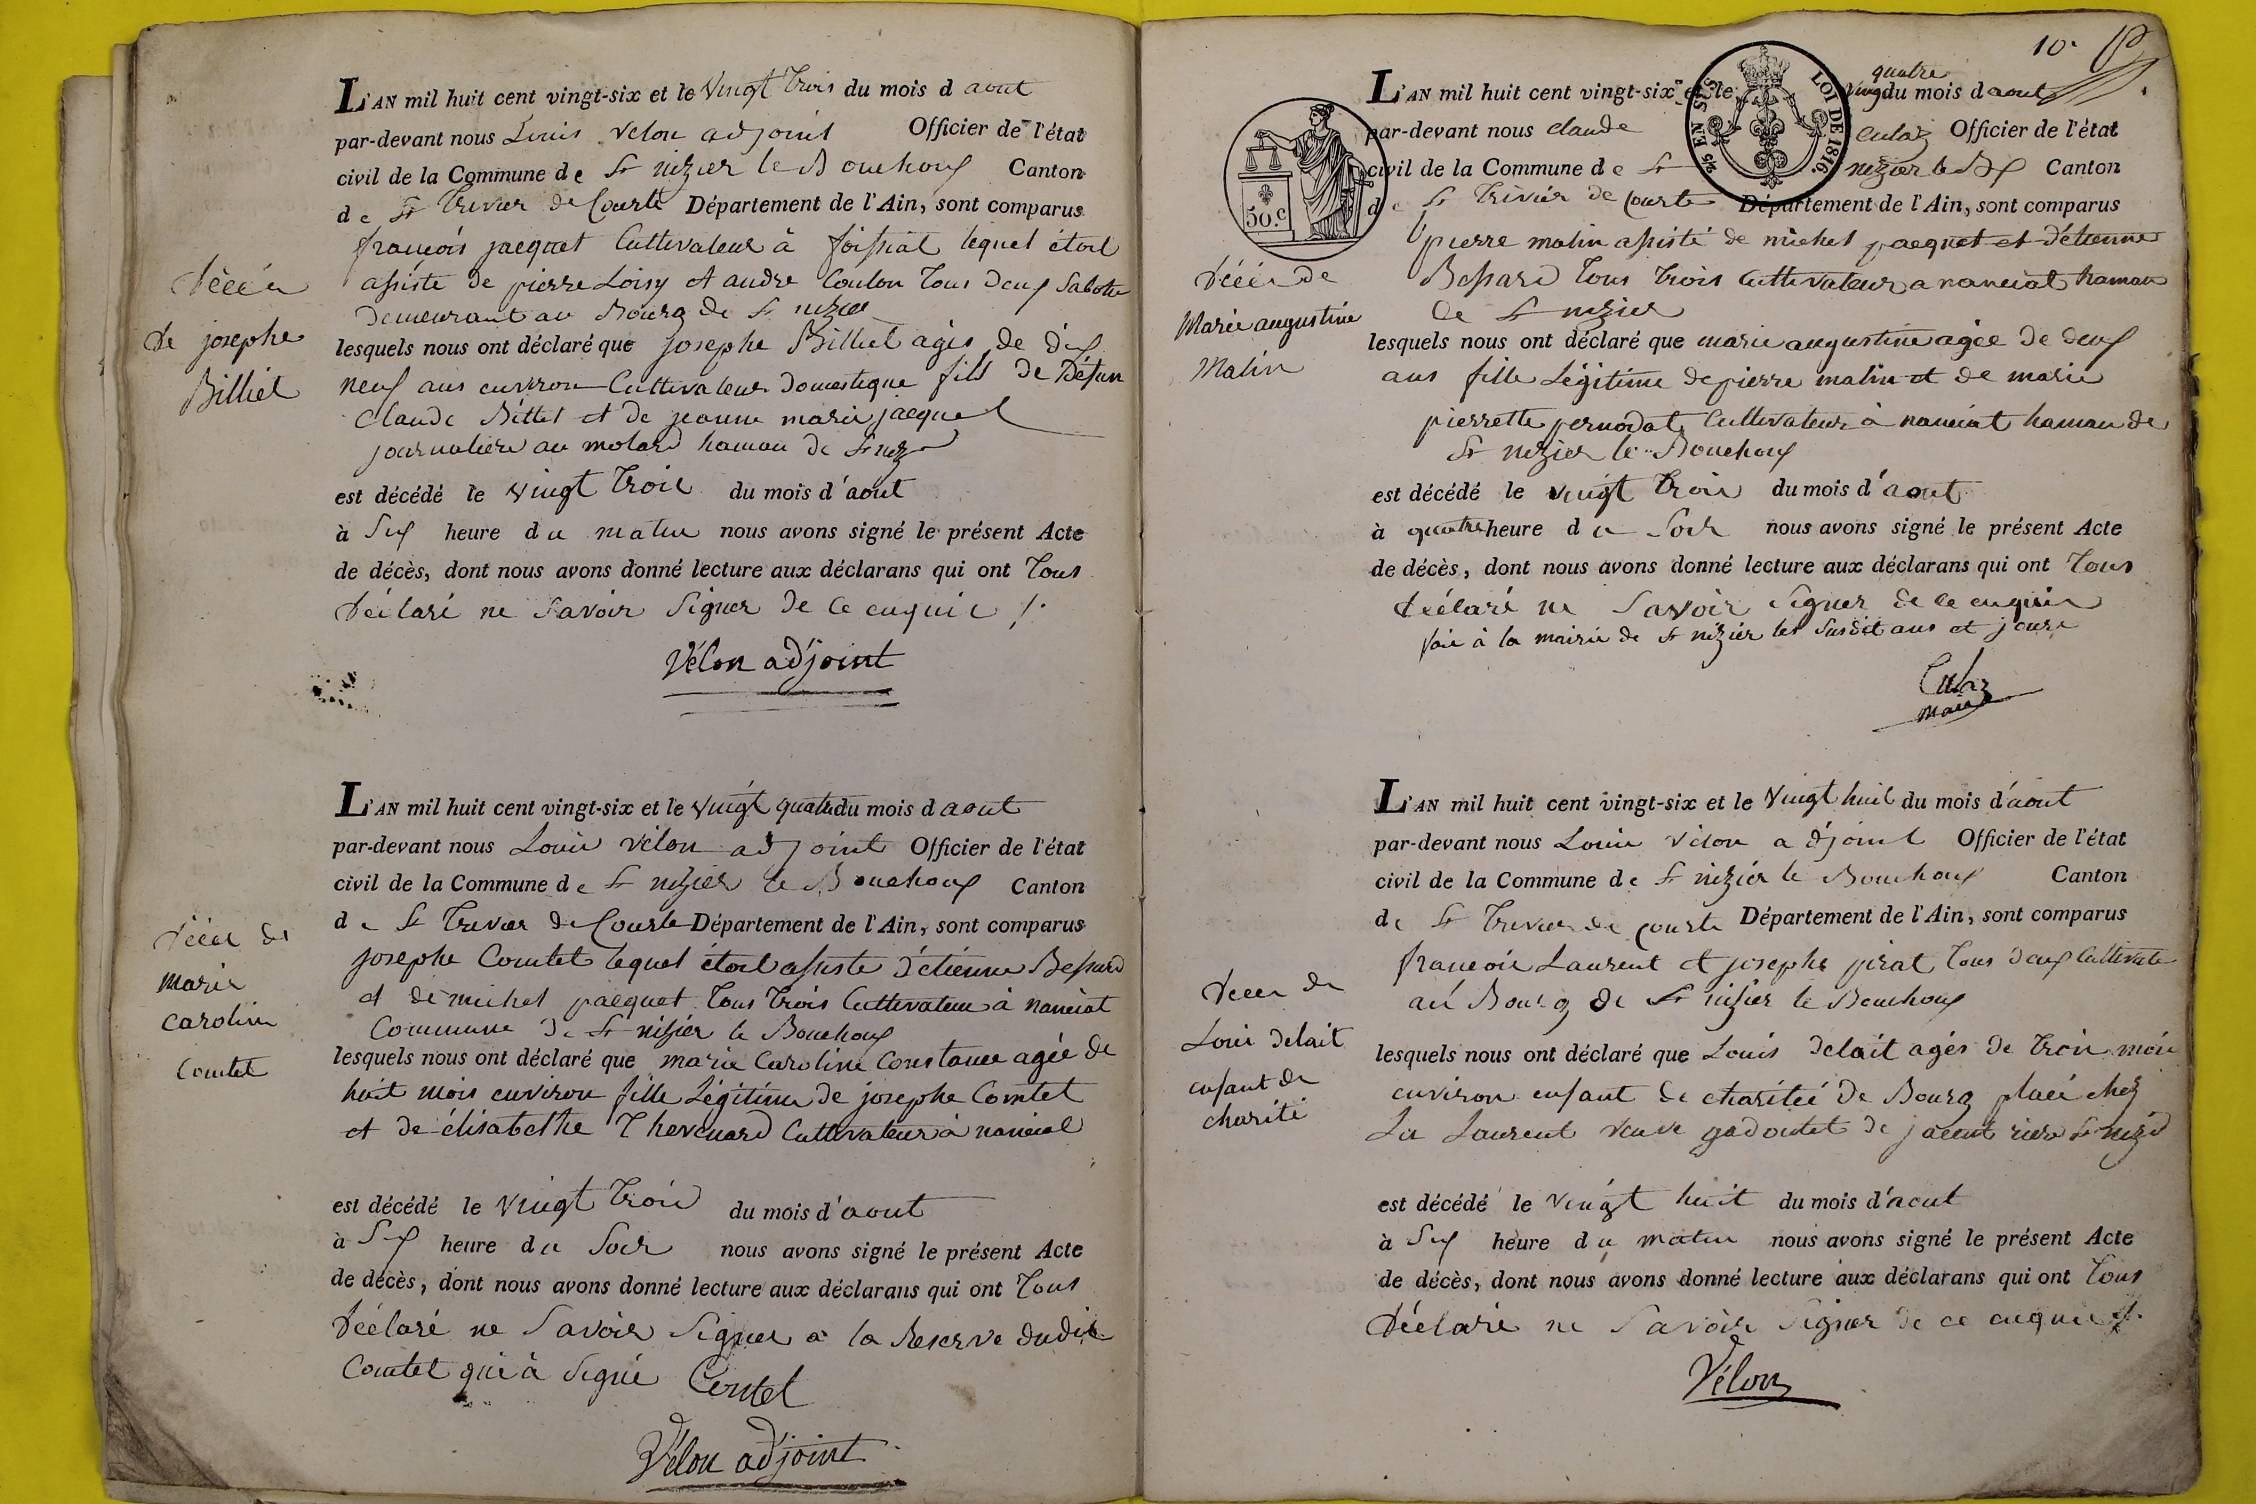 L'AN mil huit cent vingt-six et le vingt trois du mois d aout
par-devant nous Louis velon adjoint Officier de l'état
civil de la Commune de St nizier le Bouchoux Canton
de St Trivier de Courte Département de l'Ain, sont comparus
françois jacquet Cultivateur à foissiat lequel étoit
assisté de pierre Loisy et andre Coulon Tous deux Sabotie
demeurant au Bourg de St nizier
Décés
de josephe
Billiet
lesquels nous ont déclaré que josephe Billiet agés de dix
neuf ans environ Cultivateur domestique fils de Défun
Claude Billet et de jeanne marie jacquet
journaliere au molard hamau de St niz
est décédé le vingt trois du mois d'aout
à Six heure du matin nous avons signé le présent Acte
de décès, dont nous avons donné lecture aux déclarans qui ont Tous
déclaré ne Savoir Signer de ce enquis /.
Vélon adjoint
L'AN mil huit cent vingt-six et le vingt quatre du mois d aout
par-devant nous Louis vélon adjoint Officier de l'état
civil de la Commune de St nizier le Bouchoux Canton
de St Trivier de Courte Département de l'Ain, sont comparus
josephe Comtet lequel étoit assisté d'étienne Bessard
et de michel jacquet Tous trois Cultivateur à nanciat
Commune de St nizier le Bouchoux
Décés de
marie
caroline
Comtet
lesquels nous ont déclaré que marie Caroline Constance agée de
huit mois environ fille Légitime de josephe Comtet
et de élisabethe Thevenard Cultivateur à nanciat
est décédé le vingt trois du mois d'aout
à Six heure du Soir nous avons signé le présent Acte
de décès, dont nous avons donné lecture aux déclarans qui ont Tous
déclaré ne Savoir Signer a la Reserve dudit
Comtet qui à Signé Comtet
Vélon adjoint
10.
quatre
L'AN mil huit cent vingt-six et le vingt du mois d aout
par-devant nous claude Culaz Officier de l'état
civil de la Commune de St nizier le Bx Canton
de St Trivier de Courte Département de l'Ain, sont comparus
50.c
245 EN SUS LOI DE 1816.
pierre malin assisté de michel jacquet et d'étienne
Bessard Tous trois Cultivateur a nanciat hamau
de St nizier
Décés de
Marie augustine
Malin
lesquels nous ont déclaré que marie augustine agée de deux
ans fille Légitime de pierre malin et de marie
pierrette pernodat Cultivateur à nanciat hamau de
St nizier le Bouchoux
est décédé le vingt trois du mois d'aout
à quatre heure du Soir nous avons signé le présent Acte
de décès, dont nous avons donné lecture aux déclarans qui ont Tous
déclaré ne Savoir Signer de ce enquis
fait à la mairie de St nizier les Susdit ans et jours
Culaz
maire
L'AN mil huit cent vingt-six et le vingt huit du mois d'aout
par-devant nous Louis vélon adjoint Officier de l'état
civil de la Commune de St nizier le Bouchoux Canton
de St Trivier de Courte Département de l'Ain, sont comparus
françois Laurent et josephe pirat Tous deux Cultivate
au Bourg de St nizier le Bouchoux
Décés de
Loui delait
enfant de
charité
lesquels nous ont déclaré que Louis delait agés de trois mois
environ enfant de charitéé de Bourg placé chez
La Laurent veuve gadoutet de St nizi
est décédé le vingt huit du mois d'aout
à Six heure du matin nous avons signé le présent Acte
de décès, dont nous avons donné lecture aux déclarans qui ont Tous
déclaré ne Savoir Signer de ce enquis /.
Vélon